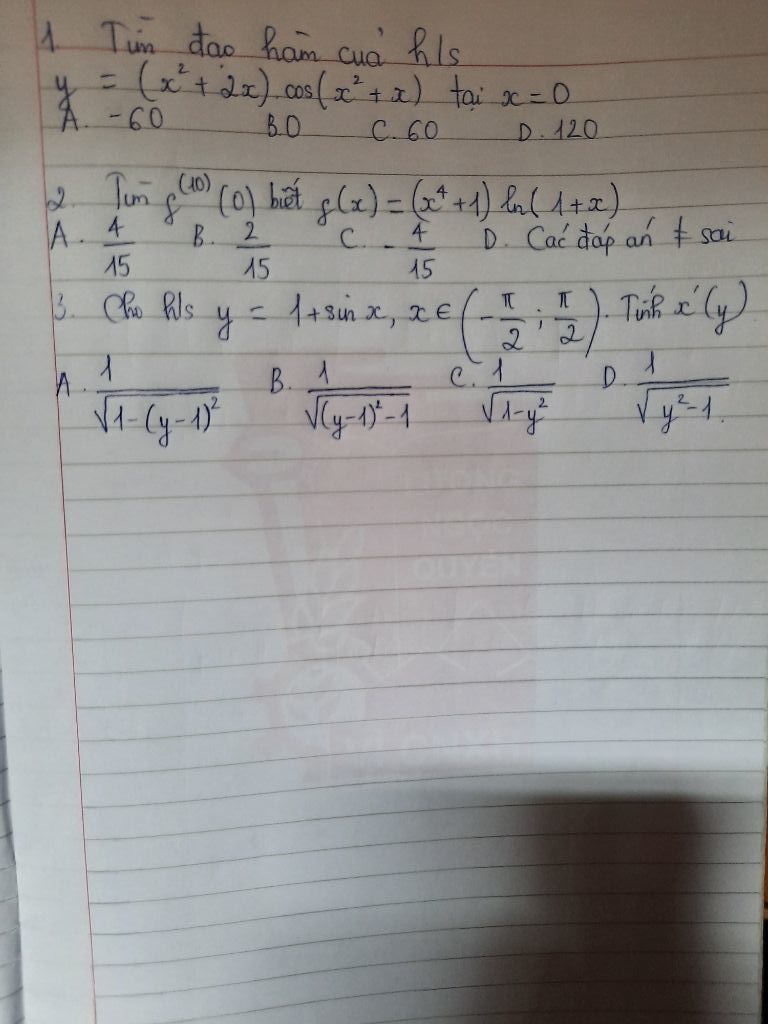 1. Tìm đạo hàm cuả h/s
y = (x² + 2x).cos(x² + x) tại x = 0
A. -60 B.0 C. 60 D. 120
2. Tìm f⁽¹⁰⁾(0) biết f(x) = (x⁴+1) ln(1+x)
A. 4/15 B. 2/15 C. -4/15 D. Các đáp án ≠ sai
3. Cho h/s y = 1+sin x, x ∈ (-π/2 ; π/2). Tính x'(y)
A. 1/√(1-(y-1)²) B. 1/√((y-1)²-1) C. 1/√(1-y²) D. 1/√(y²-1).
QUYỀN